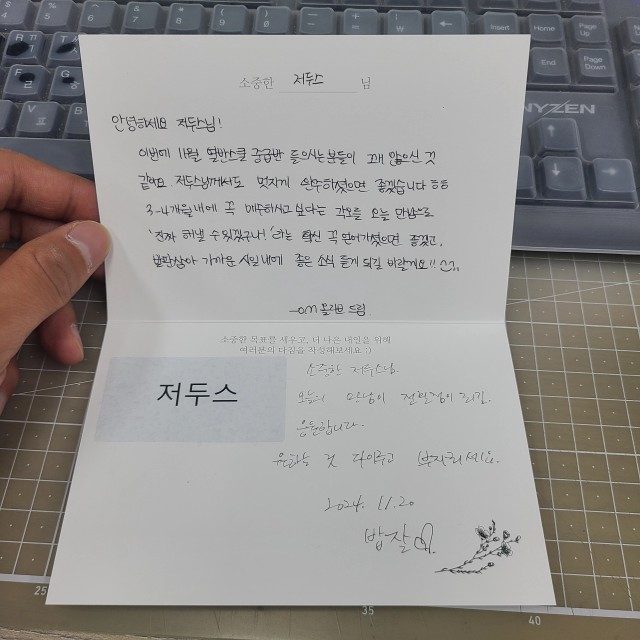 소중한 저두스 님
안녕하세요 저두스님!
이번에 11월 열반스쿨 중급반 들으시는 분들이 꽤 많으신 것
같아요. 저두스님께서도 멋지게 완수하셨으면 좋겠습니다 ㅎㅎ
3-4개월 내에 꼭 매수하시고 싶다는 각오를 오늘 만남으로
'진짜 해낼 수 있겠구나!' 라는 확신 꼭 얻어가셨으면 좋겠고,
발판삼아 가까운 시일내에 좋은 소식 듣게 되길 바랄게요!!
소중한 목표를 세우고, 더 나은 내일을 위해
여러분의 다짐을 작성해보세요 :)
저두스
소중한 저두스님.
오늘의 만남이 전환점이 되길.
응원합니다.
원하는 것 다 이루고 부자되세요.
2024. 11. 20
밥잘
Insert
Home
Page Up
End
Page Down
NYZEN
25
35
40